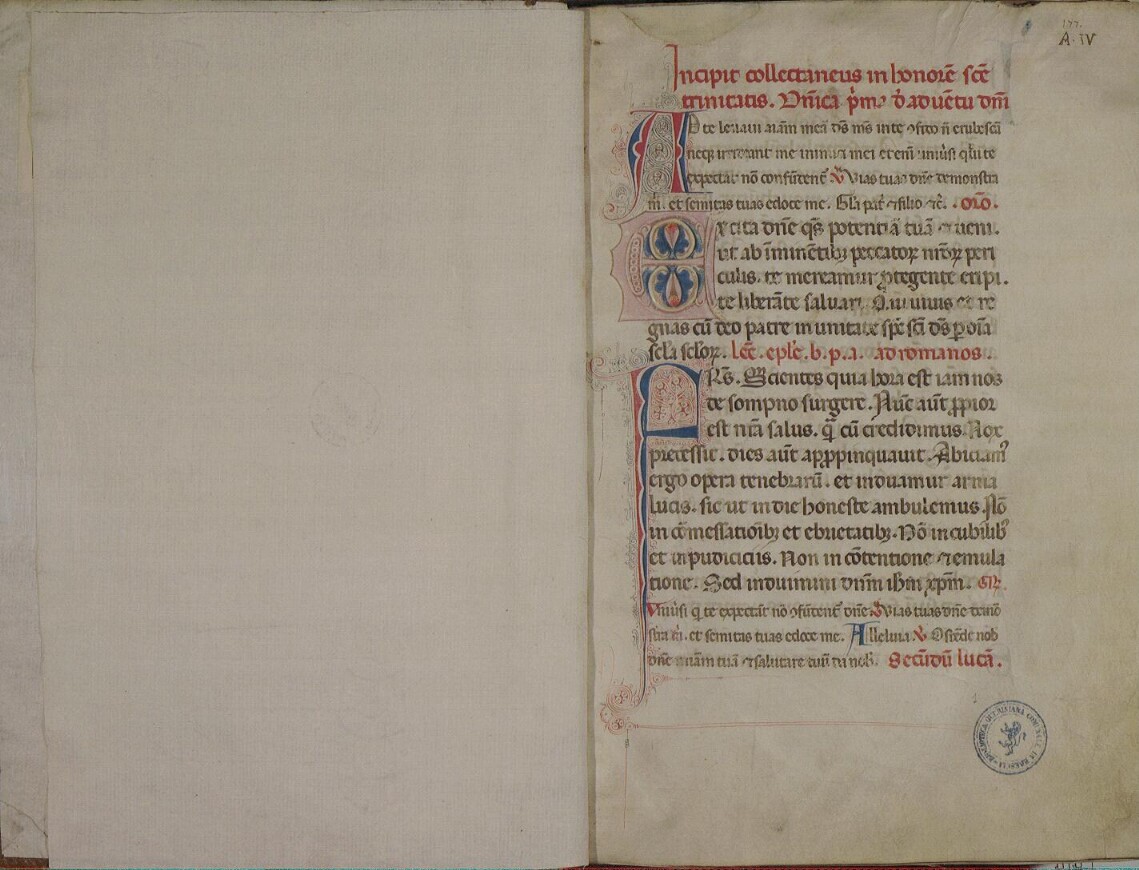 177.
A. IV
Incipit collectaneus in honorē scē
trinitatis. Dn̄ica p̄m. d̄ aduētu dn̄i
AD te leuaui aīam meā ds̄ ms̄ in te ꝯfido n̄ erubescā
neqꝫ irrideant me inimici mei etenī uniūsi qui te
expectāt nō confūdent̄ ℣ Uias tuas dn̄e demonstra
m̄. et semitas tuas edoce me. Gl̄a pat̄ ⁊ filio ⁊c̄. oro.
Excita dn̄e qs̄ potentiā tuā ⁊ ueni.
ut ab īminētibꝫ peccatoꝝ nr̄oꝝ peri
culis. te mereamur ꝓtegente eripi.
te liberāte saluari. Qui uiuis et re
gnas cū deo patre in unitate sp̄c sc̄i ds̄ ꝑ oīa
scl̄a scl̄oꝝ. lēc. ep̄le. b. p. a. ad romanos.
FRS̄. Scientes quia hora est iam nos
de sompno surgere. Nūc aūt ꝓpior
est nr̄a salus. q̄ cū credidimus. Nox
precessit. dies aūt apꝓpinquauit. Abiciamꝰ
ergo opera tenebrarū. et induamur arma
lucis. sic ut in die honeste ambulemus. Nō
in cōmessatioībꝫ et ebrietatibꝫ. Nō in cubilibꝰ
et inpudiciciis. Non in cōtentione ⁊ emula
tione. Sed induimini dn̄m ih̄m xp̄m. GR̄.
Uniūsi q̄ te expectāt nō ꝯfūdent̄ dn̄e ℣ Uias tuas dn̄e demō
stra m̄. et semitas tuas edoce me. Alleluia ℣ Ostēde nob̄
dn̄e mīam tuā ⁊ salutare tuū da nob̄. Secūdū lucā.